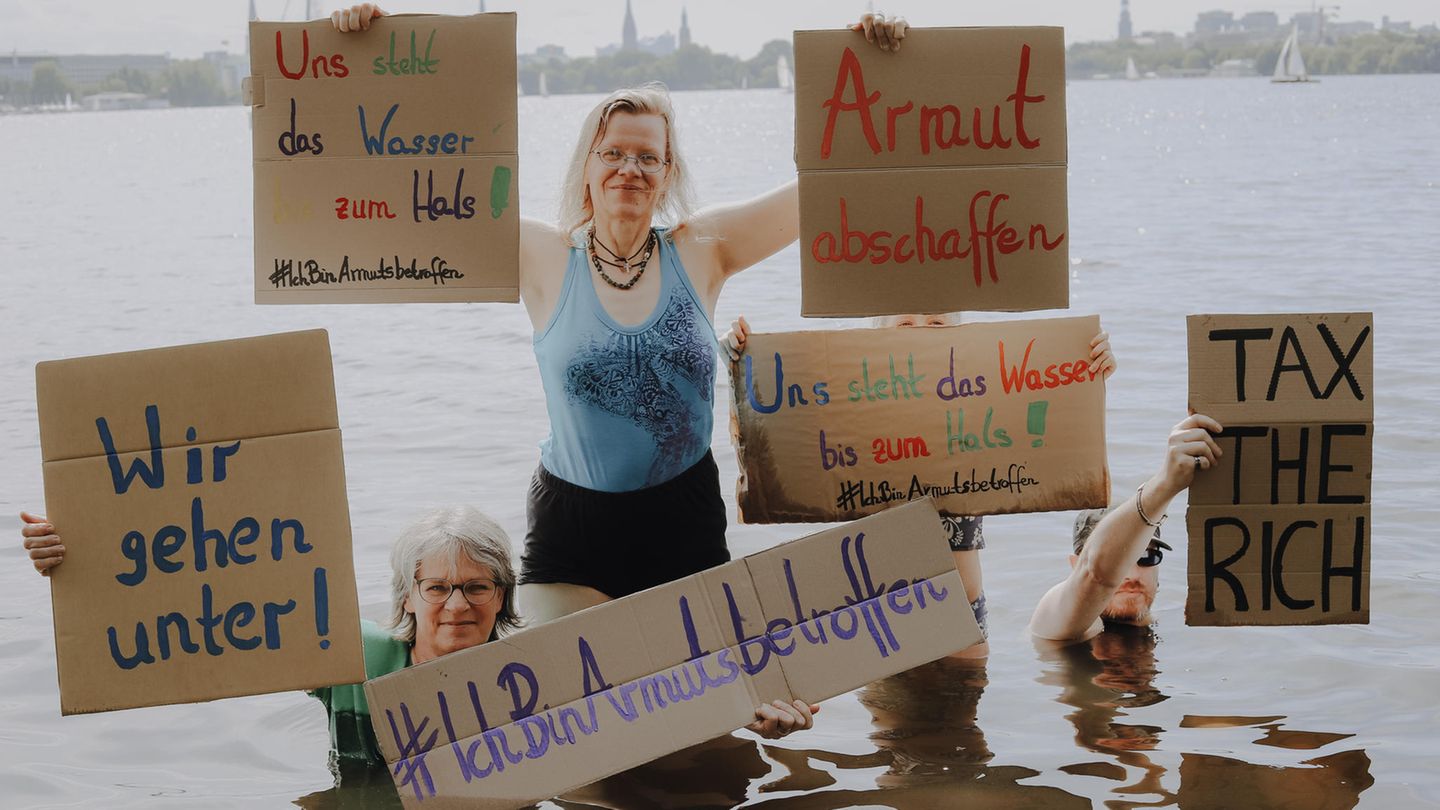 Uns steht
das Wasser
bis zum Hals!
#IchBinArmutsbetroffen
Armut
abschaffen
Wir
gehen
unter!
Uns steht das Wasser
bis zum Hals!
#IchBinArmutsbetroffen
#IchBinArmutsbetroffen
TAX
THE
RICH